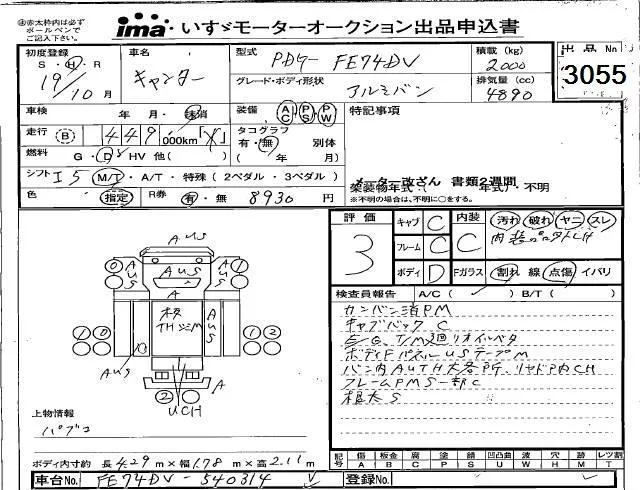 赤太枠内は必ず
ボールペンで
ご記入下さい。
ima いすゞモーターオークション出品申込書
初度登録 S・H・R 19/10月
車名 キャンター
型式 PDG- FE74DV
グレード・ボディ形状 アルミバン
積載 (kg) 2000
排気量 (cc) 4890
出品No 3055
車検 年 月・抹消
装備 AC PS PW
特記事項
走行 B 449,000km
タコグラフ 有・無 別体 ( 年 月)
燃料 G・D・HV 他( )
シフト I5 M/T・A/T・特殊 (2ペダル・3ペダル)
メーター改ざん 書類2週間
架装物年式( 年式)・不明
※不明の場合は、不明に○をする。
色 指定 R券 有・無 8930円
評価 3
キャブ C 内装 C 汚れ 破れ ヤニ スレ
フレーム C
ボディ D Fガラス 割れ 線 点傷・イバリ
検査員報告 A/C ( ✓ ) B/T ( )
カンバン済PM
キャブバック C
E/G、T/M廻リオイルベタ
ボディFパネルUSテープM
バン内AUTH大各所、リヤドア内CH
フレームPMS一部C
根太S
AUS
0 AUS AUS AUS 1
A
AUS
1 2
AUS
A
2
UCH
上物情報
パブコ
ボディ内寸約 長4.29m×幅1.78m×高2.11m
記号 傷A 板金B 腐C 塗P 錆S 凹U 凸凹曲US 波W 穴H 跡M レツ割T
車台No. FE74DV-540314
登録No.